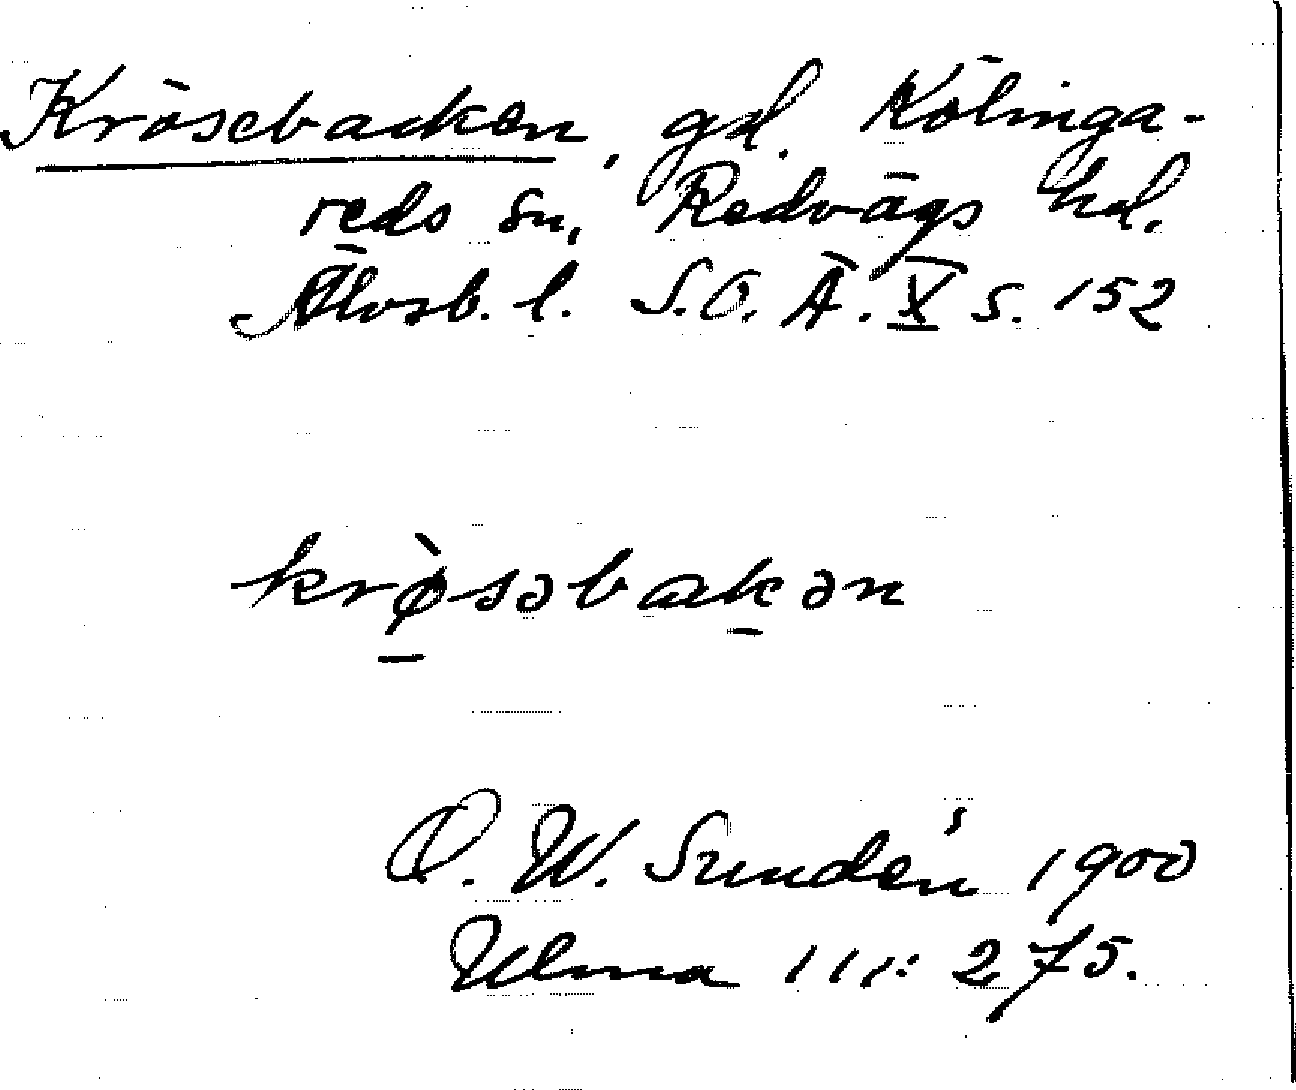 Krösebacken, gd. Kölinga-
reds sn, Redvägs hd.
Älvsb. l. S.O.Ä. X s. 152
krø̀səbakən
D. W. Sundén 1900
Ulma 111:275.